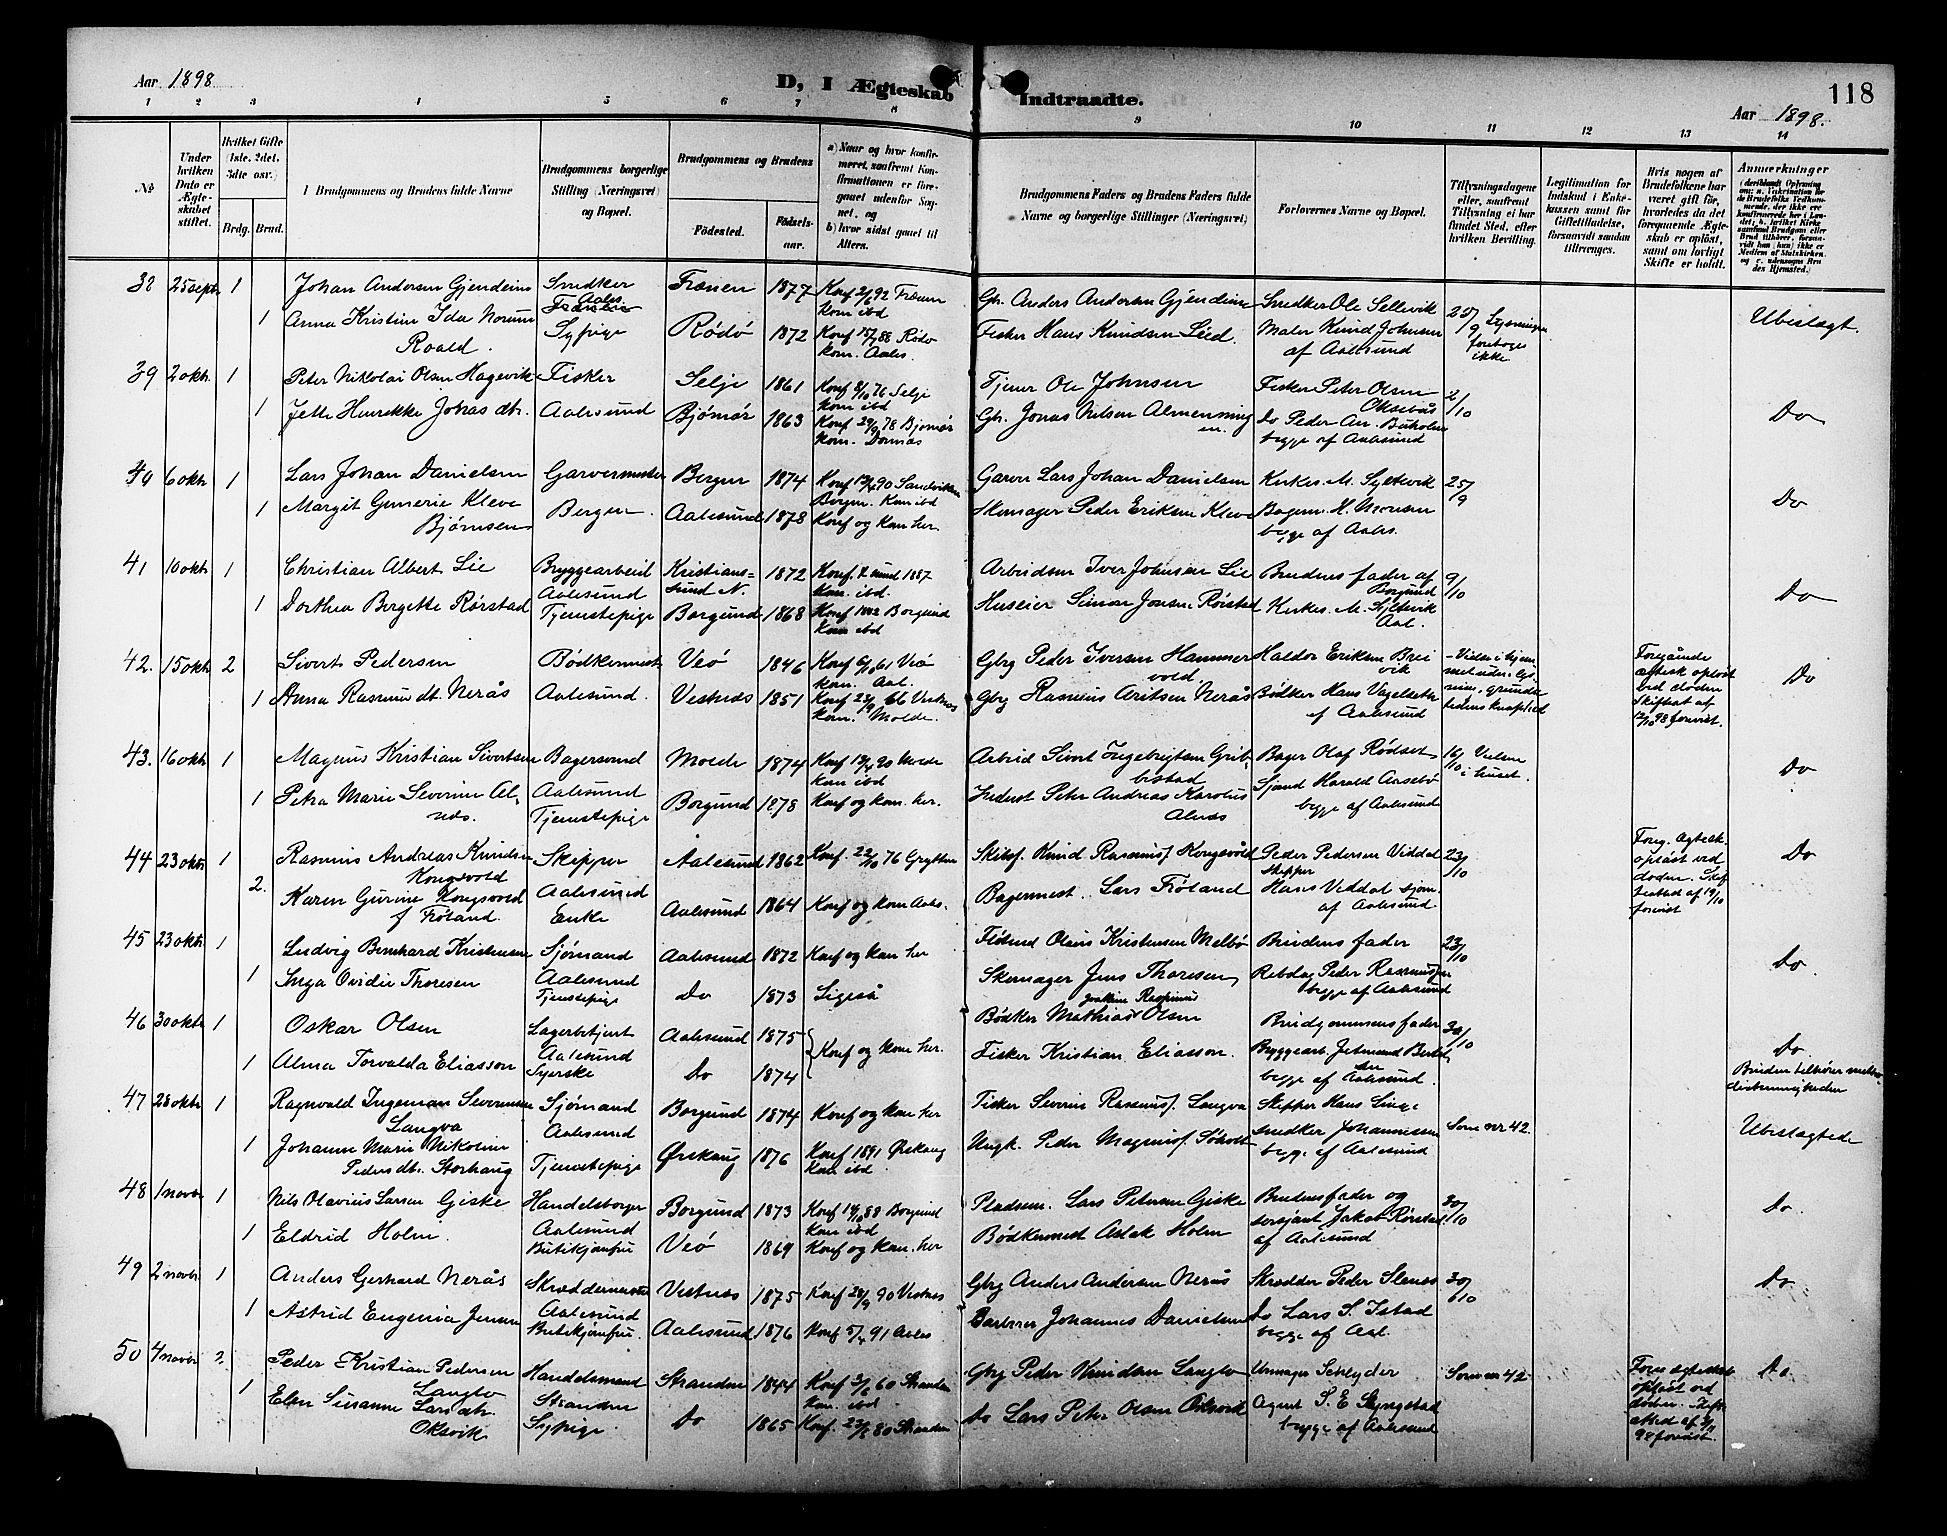 Aar 1898.
D, I Ægteskab Indtraadte.
118
Aar 1898.
1 2 3 4 5 6 7 8 9 10 11 12 13 14
No
Under hvilken Dato er Ægteskabet stiftet.
Hvilket Gifte (1ste, 2det, 3die osv.)
Brdg. Brud.
Brudgommens og Brudens fulde Navne
Brudgommens borgerlige Stilling (Næringsvei) og Bopæl.
Brudgommens og Brudens
Fødested.
Fødselsaar.
a) Naar og hvor konfirmeret, saafremt Konfirmationen er foregaaet udenfor Sognet, og
b) hvor sidst gaaet til Alters.
Brudgommens Faders og Brudens Faders fulde Navne og borgerlige Stillinger (Næringsvei)
Forlovernes Navne og Bopæl.
Tillysningsdagene eller, saafremt Tillysning ei har fundet Sted, efter hvilken Bevilling.
Legitimation for Indskud i Enkekassen samt for Giftetilladelse, forsaavidt saadan tiltrænges.
Hvis nogen af Brudefolkene har været gift før, hvorledes da det foregaaende Ægteskab er opløst, samt om lovligt Skifte er holdt.
Anmærkninger
38 25 sept 1 Johan Andersen Gjendeim Snedker Aales. Frænen 1877 Konf 2/6 92 Frænen kom ibd Gbr. Anders Andersen Gjendeim Snedker Ole Sellevik 25/9 Lysninger foretoges ikke Ubeslægt.
1 Anna Kristine Ida Norum Roald. Sypige Rödö 1872 Konf 15/7 88 Rödö kom. Aales. Fisker Hans Knudsen Lied. Maler Knud Johnsen af Aalesund
39 2 okt. 1 Peter Nikolai Olsen Hagevik Fisker Selje 1861 Konf 8/10 76 Selje kom ibd Tjener Ole Johnsen Fisker Peter Olsen Oksebås 2/10 Do
1 Jette Henrikke Jonas dt. Aalesund Bjömör 1863 Konf 29/9 78 Bjömör kom. Gbr. Jonas Nilsen Almenningen. Do Peder And. Buholm begge af Aalesund
40 6 okt 1 Lars Johan Danielsen Garvermester Bergen 1874 Konf 13/4 90 Sandviken Bergen. Kom ibd Garver Lars Johan Danielsen Kirkes. M. Syltevik 25/9 Do
1 Margit Gunerie Kleve Bjørnsen Bergen. Aalesund 1878 Konf og kom her. Skomager Peder Eriksen Kleve Bagerm. H. Monsen begge af Aales.
41 10 okt 1 Christian Albert Lie Bryggearbeid Aalesund Kristianssund N. 1872 Konf. K.sund 1887 kom. ibd. Arbeidsm Iver Johnsen Lie Brudens fader af Borgund 9/10 Do
1 Dorthea Bergette Rörstad Tjenestepige Borgund 1868 Konf 1882 Borgund kom ibd Huseier Simon Jonsen Rörstad Kirkes. M. Syltevik Aal.
42. 15 okt 2 Sivert Pedersen Bödkermest Veö 1846 Konf 6/10 61 Veö kom. Aal. Gbrg Peder Iversen Hammervold. Haldor Eriksen Breivik Foregående ægtesk opløst ved döden Skifteat af 12/10 98 forevist. Do
1 Anna Rasmus dt. Nerås Aalesund. Vestnes 1851 Konf 23/9 66 Vestnes kom. Molde. Gbrg Rasmus Aritsen Nerås Bödker Hans Vageldsten af Aalesund
43. 16 okt 1 Magnus Kristian Sivertsen Bagersvend Molde 1874 Konf 13/4 90 Molde kom ibd Arbeid Sivert Ingebrigtsen Gribbestad Bager Olaf Rödset 16/10 Vielsen i huset. Do
1 Petra Marie Severine Alnes. Aalesund Tjenestepige Borgund 1878 Konf og kom. her. Inderst Peter Andreas Karolus Alnæs Sjömd Harald Aasebö begge af Aalesund
44 23 okt 1 Rasmus Andreas Knudsen Kongsvold Skipper Aalesund 1862 Konf. 22/10 76 Grytten Skibsf. Knud Rasmusf Kongsvold Peder Pedersen Viddal Skipper 23/10 Foreg. ægtesk. opløst ved döden. Skifteattest af 19/10 forevist Do
2. Karen Gurine Kongsvold f. Fröland. Aalesund Enke Aalesund 1864 Konf og kom Aales. Bagermest. Lars Fröland Hans Viddal sjöm. af Aalesund.
45 23 okt. 1 Ludvig Bernhard Kristensen Sjömand Aalesund 1872 Konf og kom her Flödsmd Olaus Kristensen Melbö Brudens fader 23/10 Do.
1 Inga Ovidie Thoresen Aalesund Tjenestepige Do 1873 Ligeså Skomager Jens Thoresen Rebslag Peder Rasmussen begge af Aalesund
46 30 okt 1 Oskar Olsen Lagerbetjent Aalesund 1875 Konf og kom her. Bødker Mathias Joakim Rasmus Olsen Brudgommens fader 30/10 Do.
1 Alma Torvalda Eliasson Aalesund Syerske Do 1874 Fisker Kristian Eliasson. Bryggearb. Jetmund Bertelsen begge af Aalesund. Bruden tilhörer methodistmenigheden
47 28 okt 1 Ragnvald Ingeman Severinsen Langva Sjömand Aalesund Borgund 1874 Konf og kom her Fisker Severin Rasmusf. Langva Skipper Hans Linge Som nr 42. Ubeslægtede
1 Johanne Marie Nikoline Peders dt. Storhaug Tjenestepige Ørskoug 1876 Konf 1891 Ørskoug kom ibd Ungk. Peder Magnusf Söholt snedker Johannessen begge af Aalesund
48 1 novbr 1 Nils Olavius Larsen Giske Handelsborger Borgund 1873 Konf 14/10 88 Borgund kom ibd Pladsm. Lars Petersen Giske Brudens fader og 30/10 Do.
1 Eldrid Holm. Aalesund Butikjomfru Veö 1869 Konf og kom. her Bödkermest Aslak Holm sersjant Jakob Rörstad af Aalesund
49 2 novbr 1 Anders Gerhard Nerås Skreddermester Vestnes 1875 Konf 28/9 90 Vestnes Gbrg Anders Andersen Nerås Skrædder Peder Slenes 30/10 Do
1 Astrid Eugenia Jensen Aalesund Butikjomfru. Aalesund 1876 Konf 5/4 91 Aales Barberer Johannes Danielsen Do Lars S. Istad begge af Aal.
50 4 novbr 2. Peder Kristian Pedersen Langlo Handelsmand Stranden 1844 Konf 3/6 60 Stranden kom. ibd. Gbrg Peder Knudsen Langlo Urmager Schlyder Som nr 42 Foreg ægteskab opløst ved döden. Skifteattest af 3/11 98 forevist. Do
1 Elen Susanne Lars dt. Oksvik Stranden Sypige Do 1865 Konf. 23/5 80 Stranden Do Lars Peter Olsen Oksvik Agent S. E. Slyngstad begge af Aalesund